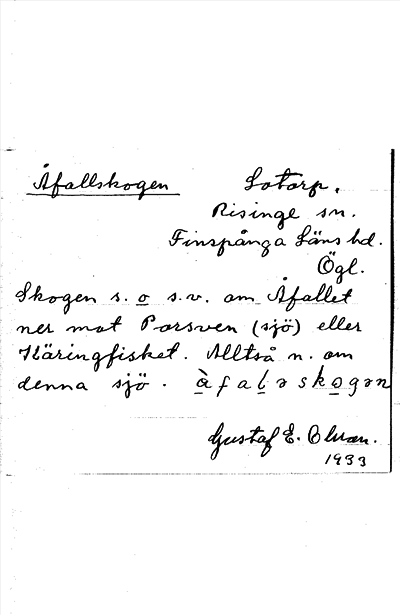 Åfallskogen
Lotorp.
Risinge sn.
Finspånga Läns hd.
Ögl.
Skogen s. o s.v. om Åfallet
ner mot Porsven (sjö) eller
Käringfisket. Alltså n. om
denna sjö. àfalaskogən
Gustaf E. Olsson.
1933